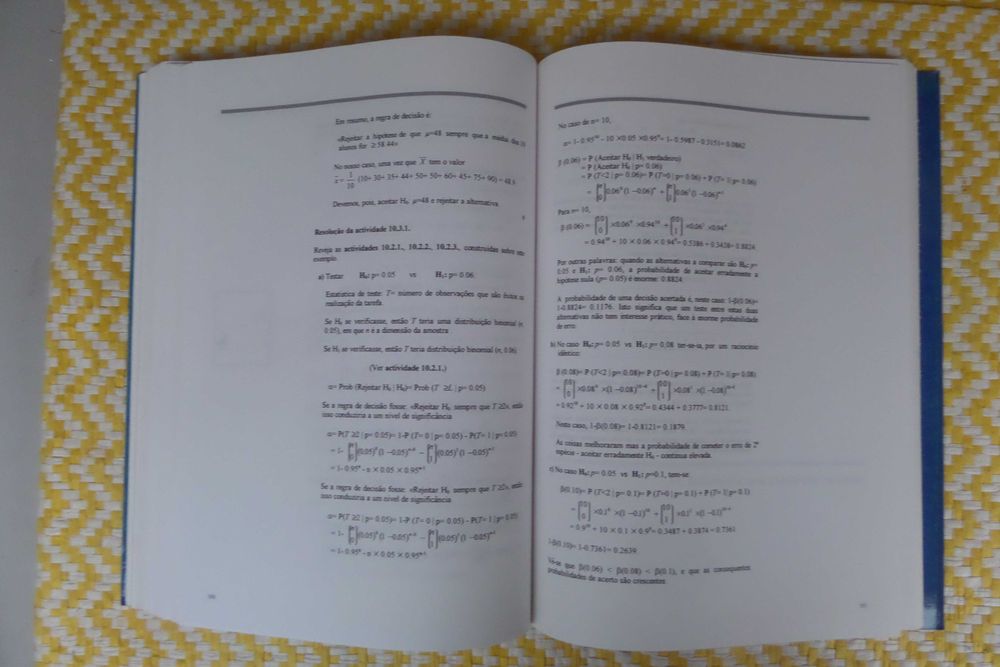 Em resumo, a regra de decisão é:
«Rejeitar a hipótese de que μ=48 sempre que a média dos 10
alunos for ≥58.44»
No nosso caso, uma vez que X̅ tem o valor
x̅= 1/10 (10+ 30+ 35+ 44+ 50+ 50+ 60+ 45+ 75+ 90) = 48.9
Devemos, pois, aceitar H₀: μ=48 e rejeitar a alternativa.
Resolução da actividade 10.3.1.
Reveja as actividades 10.2.1., 10.2.2., 10.2.3., construídas sobre este
exemplo.
a) Testar H₀: p= 0.05 vs H₁: p= 0.06.
Estatística de teste: T= número de observações que são êxitos na
realização da tarefa.
Se H₀ se verificasse, então T teria uma distribuição binomial (n,
0.05), em que n é a dimensão da amostra.
Se H₁ se verificasse, então T teria distribuição binomial (n, 0.06).
(Ver actividade 10.2.1.)
α= Prob (Rejeitar H₀ | H₀)= Prob (T ≥L | p= 0.05)
Se a regra de decisão fosse: «Rejeitar H₀ sempre que T ≥2», então
isso conduziria a um nível de significância
α= P(T ≥2 | p= 0.05)= 1-P (T= 0 | p= 0.05) - P(T= 1 | p= 0.05)
= 1- (n 0)(0.05)⁰(1 -0.05)ⁿ⁻⁰ - (n 1)(0.05)¹(1 -0.05)ⁿ⁻¹
= 1- 0.95ⁿ - n × 0.05 × 0.95ⁿ⁻¹
Se a regra de decisão fosse: «Rejeitar H₀ sempre que T ≥2», então
isso conduziria a um nível de significância
α= P(T ≥2 | p= 0.05)= 1-P (T= 0 | p= 0.05) - P(T= 1 | p= 0.05)
= 1- (n 0)(0.05)⁰(1 -0.05)ⁿ⁻⁰ - (n 1)(0.05)¹(1 -0.05)ⁿ⁻¹
= 1- 0.95ⁿ - n × 0.05 × 0.95ⁿ⁻¹
No caso de n= 10,
α= 1- 0.95¹⁰ - 10 ×0.05 ×0.95⁹= 1- 0.5987 - 0.3151= 0.0862
β (0.06) = P (Aceitar H₀ | H₁ verdadeiro)
= P (Aceitar H₀ | p= 0.06)
= P (T<2 | p= 0.06)= P (T=0 | p= 0.06) + P (T= 1| p= 0.06)
= (n 0)0.06⁰(1 -0.06)ⁿ + (n 1)0.06¹(1 -0.06)ⁿ⁻¹
Para n= 10,
β (0.06) = (10 0) ×0.06⁰ ×0.94¹⁰ + (10 1) ×0.06¹ ×0.94⁹
= 0.94¹⁰ + 10 × 0.06 × 0.94⁹= 0.5386 + 0.3438= 0.8824
Por outras palavras: quando as alternativas a comparar são H₀: p=
0.05 e H₁: p= 0.06, a probabilidade de aceitar erradamente a
hipótese nula (p= 0.05) é enorme: 0.8824.
A probabilidade de uma decisão acertada é, neste caso: 1-β(0.06)=
1-0.8824= 0.1176. Isto significa que um teste entre estas duas
alternativas não tem interesse prático, face à enorme probabilidade
de erro.
b) No caso H₀: p= 0.05 vs H₁: p= 0.08 ter-se-ia, por um raciocínio
idêntico:
β (0.08)= P (T<2 | p= 0.08)= P (T=0 | p= 0.08) + P (T= 1| p= 0.08)
= (10 0) ×0.08⁰ ×(1 -0.08)¹⁰⁻⁰ + (10 1) ×0.08¹ ×(1 -0.08)¹⁰⁻¹
= 0.92¹⁰ + 10 × 0.08 × 0.92⁹= 0.4344 + 0.3777= 0.8121.
Neste caso, 1-β(0.08)= 1-0.8121= 0.1879.
As coisas melhoraram mas a probabilidade de cometer o erro de 2ª
espécie - aceitar erradamente H₀ - continua elevada.
c) No caso H₀: p= 0.05 vs H₁: p=0.1, tem-se:
β(0.10)= P (T<2 | p= 0.1)= P (T=0 | p= 0.1) + P (T= 1| p= 0.1)
= (10 0) ×0.1⁰ ×(1 -0.1)¹⁰ + (10 1) ×0.1¹ ×(1 -0.1)¹⁰⁻¹
= 0.9¹⁰ + 10 × 0.1 × 0.9⁹= 0.3487 + 0.3874 = 0.7361
1-β(0.10)= 1-0.7361= 0.2639.
Vê-se que β(0.06) < β(0.08) < β(0.1), e que as consequentes
probabilidades de acerto são crescentes.